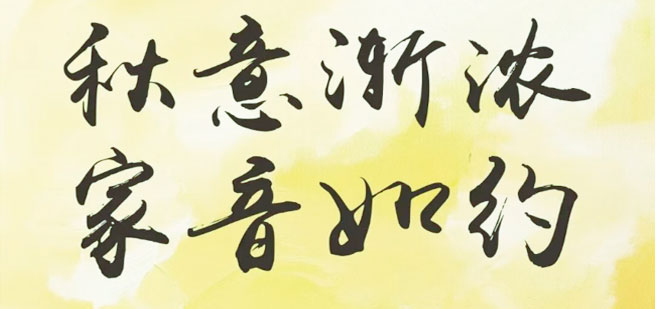 秋意渐浓
家音如约